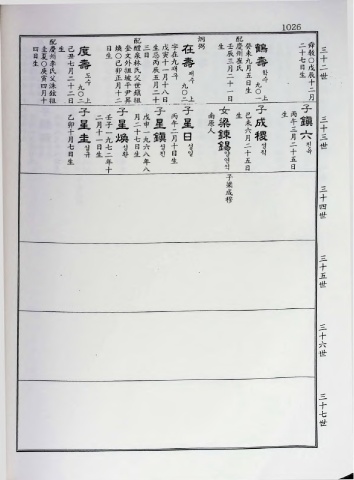 1026
三十二世
舜教○戊辰十二月
二十七日生
鶴壽 학수 九〇一上
癸未九月五日生
配慶州崔氏
壬辰三月二十一日
生
炳弼
在壽 재수 九〇二上
字在九재구
戊寅十一月十八日
生忌丙辰五月二十
三日
配醴泉林氏父世
坡平尹
己卯正月十二
日生
度壽 도수 九〇二上
己丑七月二十二日
生
配慶州李氏父洙
圭夏○庚寅四月十
四日生
三十三世
子鎭六 진육
丙午三月二十五日
生
子成稷 성직
己未六月二十五日
生
女梁鍊錫 양연석 子梁成程
南原人
子星日 성일
丙午二月十日生
子星鎭 성진
戊申一九六八年八
月二十七日生
子星煥 성환
壬子一九七二年十
二月十一日生
子星圭 성규
乙卯十月七日生
三十四世
三十五世
三十六世
三十七世